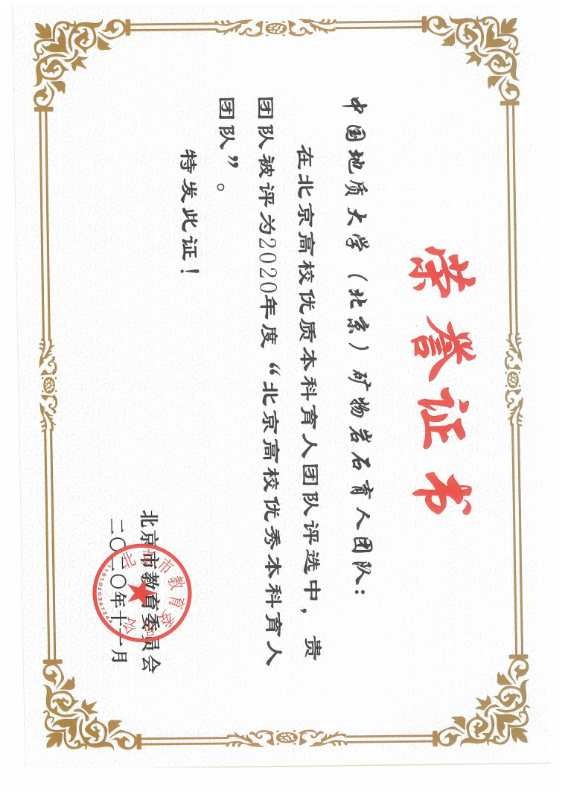 荣誉证书
中国地质大学（北京）矿物岩石育人团队：
在北京高校优质本科育人团队评选中，贵
团队被评为2020年度“北京高校优秀本科育人
团队”。
特发此证！
北京市教育委员会
二〇二〇年十一月